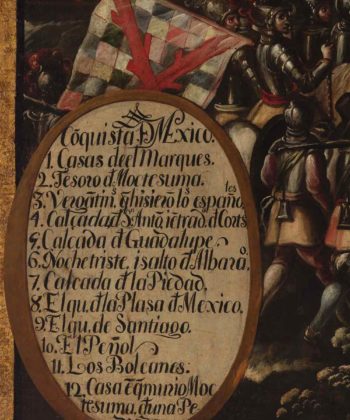 Cōquista đ MEXICO.
1. Casas del Marques.
2. Tesoro đ Moctesuma.
3. Vergātinˢ, q̄ hisierō lˢ españoˡᵉˢ
4. Calçada đ Sⁿ. Antº, i ētrad. đ Cortˢ
5. Calçada đ Guadalupe
6. Noche triste, i salto đ Albarᵃº
7. Calçada đ la Piedad,
8. El qu. đ la Plasa đ Mexico,
9. El qu. de Santiago.
10. El Peñol
11. Los Bolcanes.
12. Casa đ
tesuma, đ una Pe